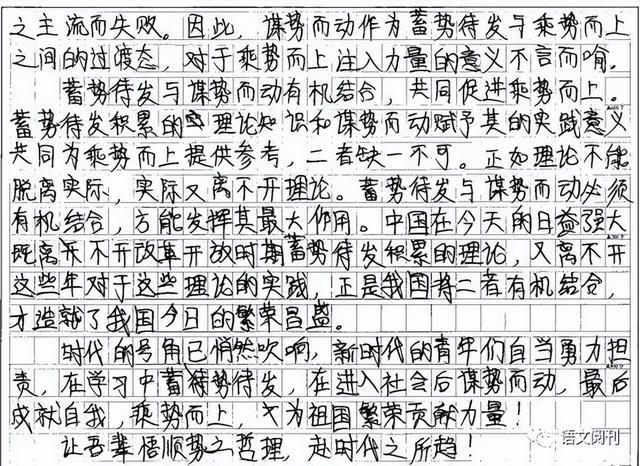 之主流而失败。因此，谋势而动作为蓄势待发与乘势而上
之间的过渡态，对于乘势而上注入力量的意义不言而喻。
蓄势待发与谋势而动有机结合，共同促进乘势而上。
蓄势待发积累的理论知识和谋势而动赋予其的实践意义
共同为乘势而上提供参考，二者缺一不可。正如理论不能
脱离实际，实际又离不开理论。蓄势待发与谋势而动必须
有机结合，方能发挥其最大作用。中国在今天的日益强大
既离不开改革开放时期蓄势待发积累的理论，又离不开
这些年对于这些理论的实践，正是我国将二者有机结合，
才造就了我国今日的繁荣昌盛。
时代的号角已悄然吹响，新时代的青年们自当勇力担
责，在学习中蓄势待发，在进入社会后谋势而动，最后
成就自我，乘势而上，为祖国繁荣贡献力量！
让吾辈悟顺势之哲理，赴时代之所趋！
语文阅刊